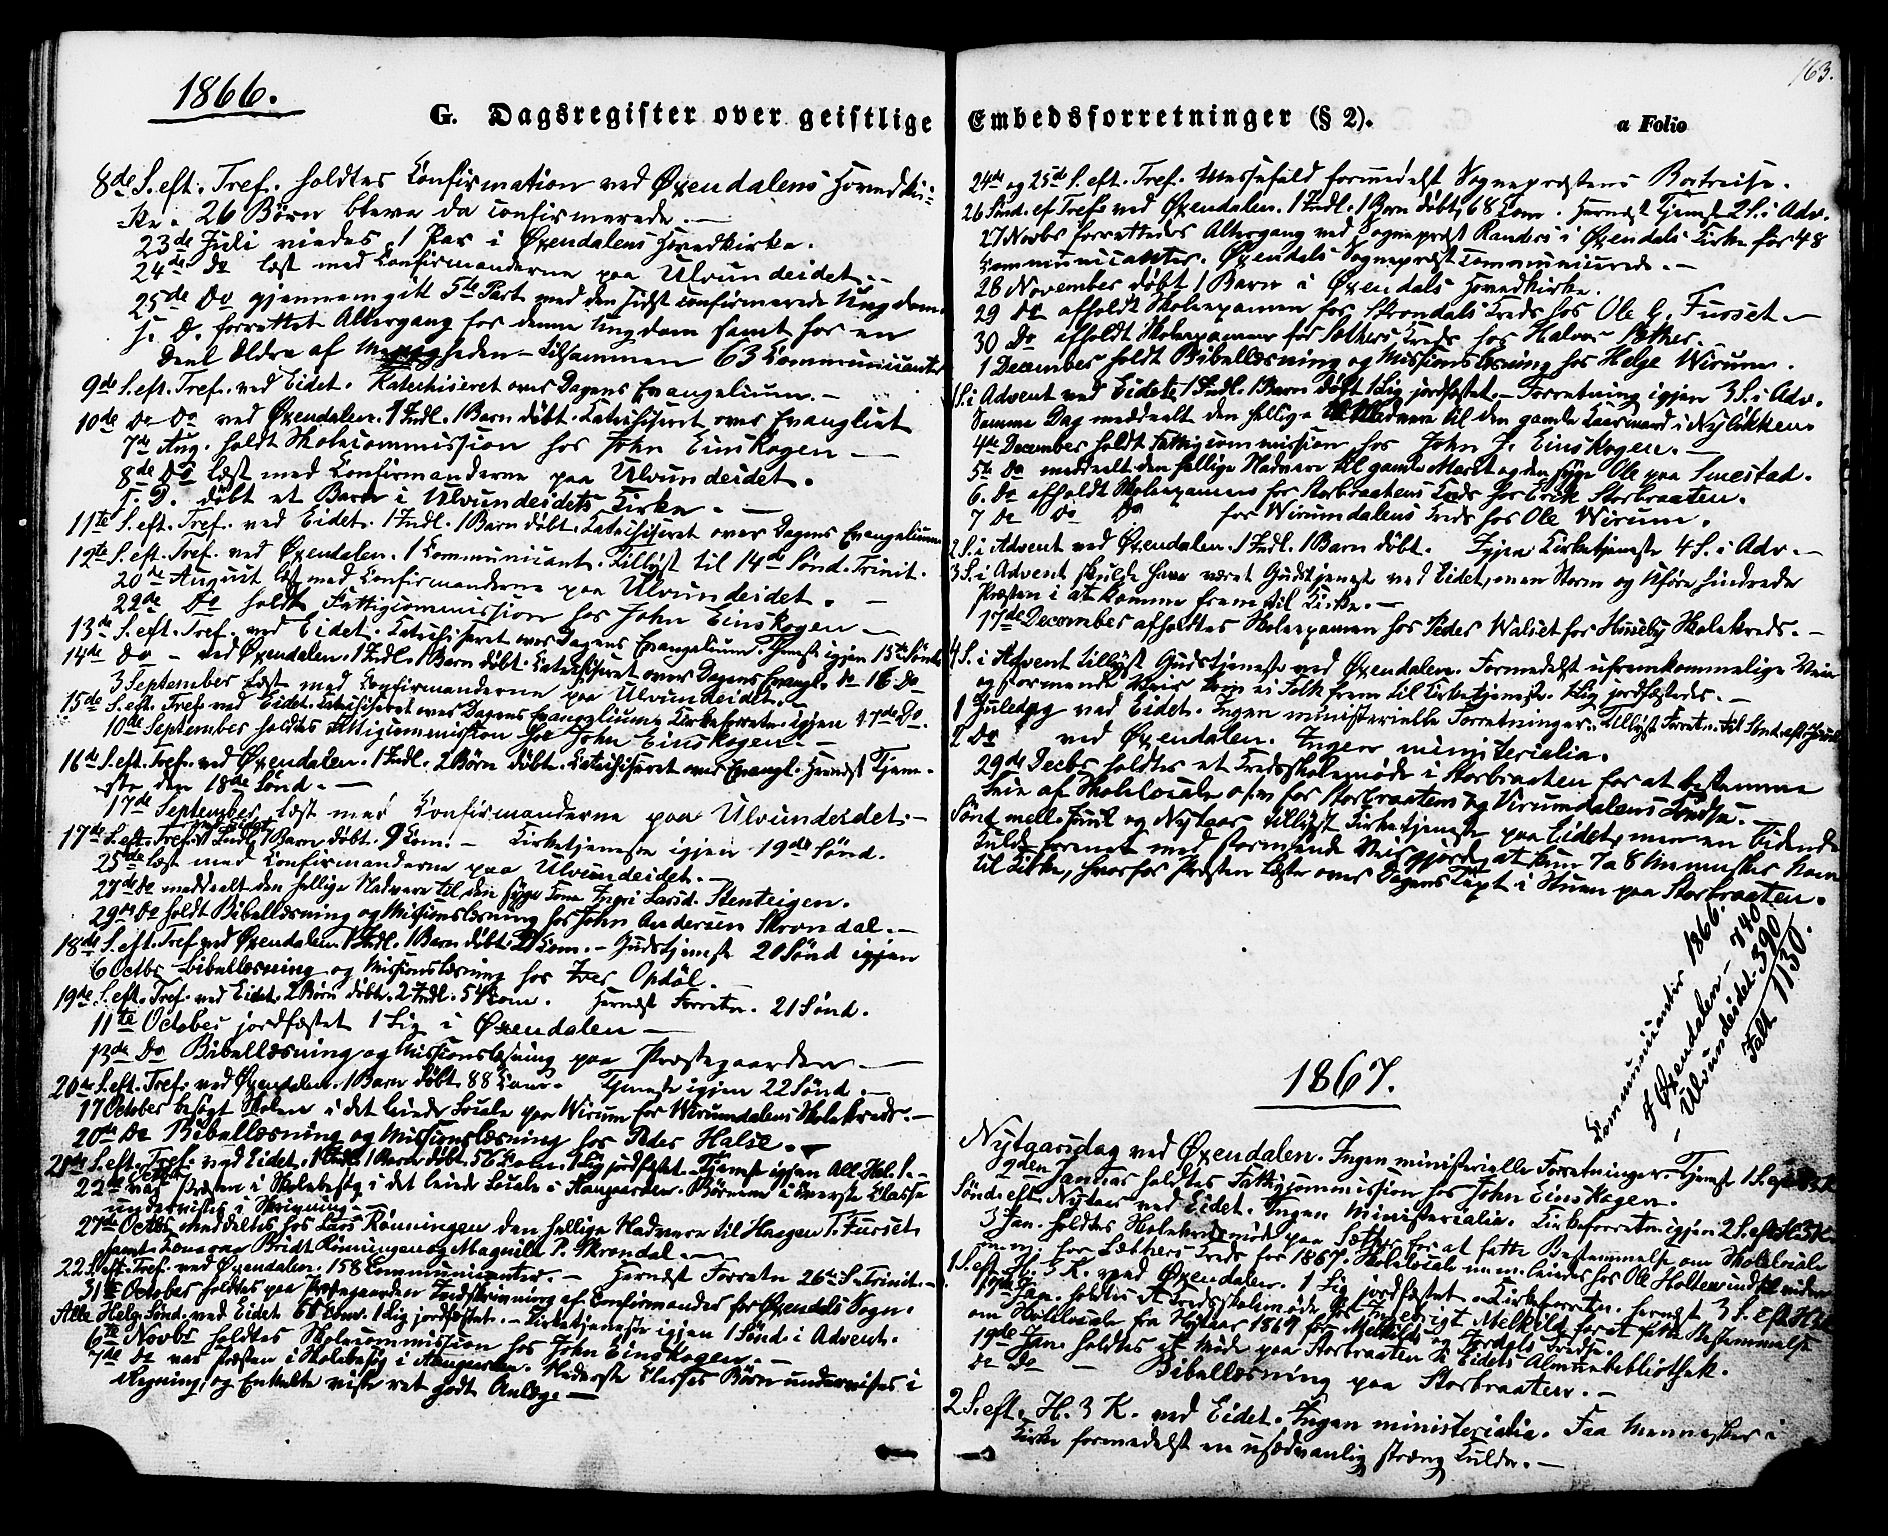 1866.
G. Dagsregister over geistlige
8de S. eft. Tref. holdtes Confirmation ved Øxendalens Hovedkir-
ke. 26 Børn bleve da confirmerede. —
23de Juli viedes 1 Par i Øxendalens Hovedkirke.
24de Do læst med Confirmanderne paa Ulvundeidet. —
25de Do gjennemgik 5te Part med den sidst confirmerede Ungdom.
s. D. forrettet Altergang for denne Ungdom samt for en
Deel Ældre af Menigheden — tilsammen 63 Communicanter
9de S. eft. Tref. ved Eidet. Katechiseret over Dagens Evangelium. —
10de Do Do ved Øxendalen. 1 Indl. 1 Barn døbt. Catechiseret over Evangliet
7de Aug. holdt Skolecommission hos John Einskogen —
8de Do læst med Confirmanderne paa Ulvundeidet.
s. D. døbt et Barn i Ulvundeidets Kirke. —
11te S. eft. Tref. ved Eidet. 1 Indl. 1 Barn døbt. Catechiseret over Dagens Evangelium
12te S. eft. Tref. ved Øxendalen. 1 Communicant. Tillyst til 14de Sønd. Trinit.
20de August læst med Confirmanderne paa Ulvundeidet. —
22de Do holdt Fattigcommission hos John Einskogen —
13de S. eft. Tref. ved Eidet. Catechiseret over Dagens Evangelium. Tjeneste igjen 15te Sønd
14de Do — ved Øxendalen. 1 Indl. 1 Barn døbt. Catechiseret over Dagens Evangl. Do 16 Do
3 September læst med Confirmanderne paa Ulvundeidet. —
15de S. eft. Tref. ved Eidet. Catechiseret over Dagens Evangelium. Kirkeforretn. igjen 17de Do.
10de September holdtes Fattigcommission hos John Einskogen. —
16de S. eft. Tref. ved Øxendalen. 1 Indl. 2 Børn døbt. Catechiseret over Evangl. Hernæst Tjene-
ste den 18de Sønd. —
17de September læst med Confirmanderne paa Ulvundeidet. —
17de S. eft. Tref. ved Eidet 1 Indl. 1 Barn døbt. 9 Com. — Kirketjeneste igjen 19de Sønd.
25de læst med Confirmanderne paa Ulvundeidet. —
27de Do meddeelt den hellige Nadvere til den syge Kone Ingri Larsd. Stenteigen.
29de Do holdt Bibellæsning og Missionslæsning hos John Andersen Skrondal. —
18de S. eft. Tref. ved Øxendalen 1 Indl. 1 Barn døbt. Com. — Gudstjeneste 20 Sønd igjen
6 Octbr Bibellæsning og Missionslæsning hos Iver Opdøl. —
19de S. eft. Tref. ved Eidet. 2 Børn døbt. 2 Indl. 54 Com. Hernæst Forretn. 21 Sønd.
11te October jordfæstet 1 Lig i Øxendalen —
13de Do Bibellæsning og Missionslæsning paa Præstegaarden. —
20de S. eft. Tref. ved Øxendalen. 1 Barn døbt. 88 Com. Tjeneste igjen 22 Sønd —
17 October besøgt Skolen i det leiede Locale paa Wirum for Wirumdalens Skolekreds. —
20de Do Bibellæsning og Missionslæsning hos Peder Halse. —
21de S. eft. Tref. ved Eidet. 1 Indl. 1 Barn døbt. 56 Com. 1 Lig jordfæstet. Tjeneste igjen All. Hel. S. —
22de October var Præsten i Skolebesøg i det leiede Locale i Haugaarden. Børnene i øverste Classe
undervistes i Skrivning. —
27de Octbr meddeltes hos Lars Rønningen den hellige Nadvere til Haagen T. Furset
samt Konerne Bridt Rønningen og Magnilde P. Skrondal. —
22 S. eft. Tref. ved Øxendalen. 158 Communicanter. — Hernæst Forretn 26te S. Trinit. —
31te October holdtes paa Præstegaarden Indskrivning af Confirmander for Øxendals Sogn.
Alle Helg. Sønd. ved Eidet Com. 1 Lig jordfæstet. — Kirketjeneste igjen 1 Sønd. i Advent.
6te Novbr holdtes Skolecommission hos John Einskogen. —
7de Do var Præsten i Skolebesøg i Haugaarden. Nederste Classes Børn undervistes i
Regning, og Enkelte viste ret godt Anlæg —
163.
Embedsforretninger (§ 2).
a Folio
24de og 25de S. eft. Tref. Messefald formedelst Sognepræstens Bortreise.
26 Sønd. ef Tref. ved Øxendalen. 1 Indl. 1 Barn døbt, 68 Com. Hernæst Tjeneste 2 S. i Adv.
27 Novbr forrettedes Altergang ved Sognepræst Randers i Øxendals Kirke for 48
Communicanter. Øxendals Sognepræst communicerede. —
28 November døbt 1 Barn i Øxendals Hovedkirke.
29 Do afholdt Skoleexamen for Skrondals Kreds hos Ole G. Furset. —
30 Do afholdt Skoleexamen for Sæthers Kreds hos Halvor Sæther. —
1 December holdt Bibellæsning og Missionslæsning hos Helge Wirum.
1 S. i Advent ved Eidet. 1 Indl. 1 Barn døbt 1 Lig jordfæstet. — Forretning igjen 3 S. i Adv.
Samme Dag meddeelt den hellige Nadvere til den gamle Lensmand i Nyløkken
4de December holdt Fattigcommission hos John J. Einskogen. —
5te Do meddeelt den hellige Nadvere til gamle Marit og den syge Ole paa Smestad.
6. Do afholdt Skoleexamen for Storbraatens Kreds hos Erik Storbraaten.
7 Do Do Do for Wirumdalens Kreds hos Ole Wirum.
2 S. i Advent ved Øxendalen. 1 Indl. 1 Barn døbt. Igjen Kirketjeneste 4 S. i Adv. —
3 S. i Advent skulde have været Gudstjeneste ved Eidet, men Storm og Uføre hindrede
Præsten i at komme frem til Kirke. —
17de December afholdtes Skoleexamen hos Peder Walset for Huseby Skolekreds. —
4 S. i Advent tillyst Gudstjeneste ved Øxendalen. Formedelst ufremkommelige Veie
og stormende Veir kom ei Folk frem til Kirketjeneste. 1 Lig jordfæstedes. —
1 Juledag ved Eidet. Ingen ministerielle Forretninger. Tillyst Forretn. til Sønd. eft. Juul
2 Do ved Øxendalen. Ingen ministerialia.
29de Decbr holdtes et Kredsskolemøde i Storbraaten for at bestemme
Leie af Skolelocale ofv for Storbraatens og Virumdalens Kredse. —
Sønd. mell. Juul og Nytaar tillyst Kirketjeneste paa Eidet, men en bidende
Kulde forenet med stormende Veir gjorde, at kun 7 a 8 Mennesker kom
til Kirke, hvorfor Præsten læste over Dagens Text i Stuen paa Storbraaten.
Communicanter 1866.
I Øxendalen — 740
— Ulvundeidet — 390
Talt 1130.
1867.
Nytaarsdag ved Øxendalen. Ingen ministerielle Forretninger. Tjeneste 1 S. eft. H. 3 K.
2den Januar holdtes Fattigcommission hos John Einskogen.
Sønd. eft. Nytaar ved Eidet. Ingen Ministerialia. Kirkeforretn. igjen 2 S. eft. H. 3 K.
3 Jan. holdtes Skolekredsmøde paa Sæther for at fatte Bestemmelse om Skolelocale
for Sæthers Kreds for 1867. Skolelocale leiedes hos Ole Holten indtil videre
1 S. eft. H. 3 K. ved Øxendalen. 1 Lig jordfæstet. Kirkeforretn. hernæst 3 S. eft H 3 K
17de Jan. holdtes et Kredsskolemøde hos Ingebrigt Melkild for at fatte Bestemmelse
om Skolelocale fra Nytaar 1867 for Melkilds og Jordals Kredse.
19de Jan. holdtes et Møde paa Storbraaten Eidets Almuebibliothek.
Do Do — Bibellæsning paa Storbraaten. —
2 S. eft. H. 3 K. ved Eidet. Ingen ministerialia. Faa Mennesker i
Kirke formedelst en usædvanlig streng Kulde. —